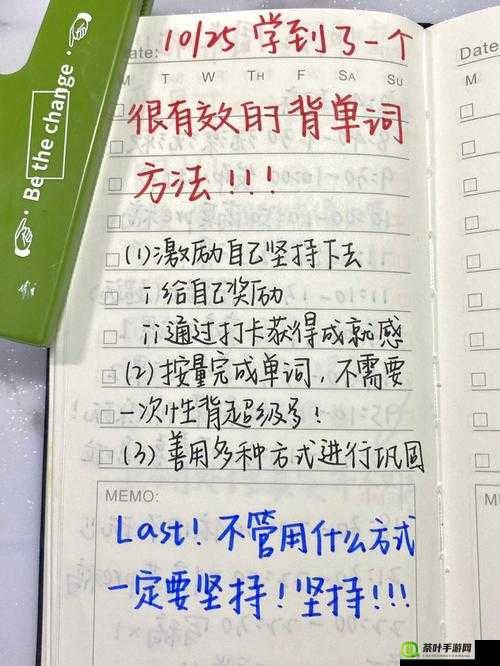 Be the change
Date: 10/25 学到了一个
M T W TH F SA SU
很有效的背单词
方法!!!
(1)激励自己坚持下去
i 给自己奖励
ii 通过打卡获得成就感
(2)按量完成单词,不需要
一次性背超级多!
(3)善用多种方式进行巩固
MEMO:
Last! 不管用什么方式
一定要坚持!坚持!!!
Date
M
茶叶手游网